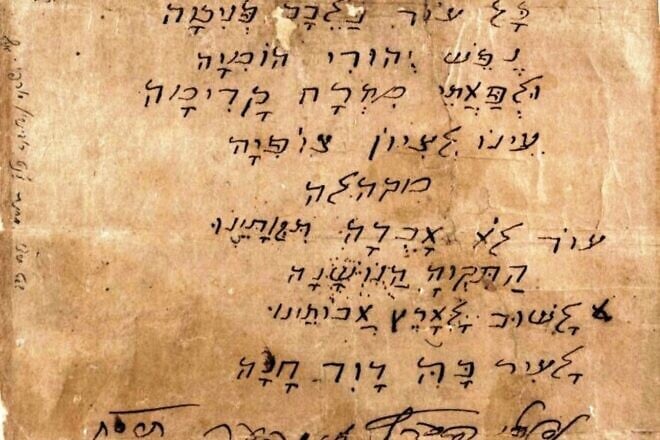 כָּל עוֹד בַּלֵּבָב פְּנִימָה
נֶפֶשׁ יְהוּדִי הוֹמִיָּה
וּלְפַאֲתֵי מִזְרָח קָדִימָה
עֵינוֹ לְצִיּוֹן צוֹפִיָּה
מקהלה
עוֹד לֹא אָבְדָה תִּקְוָתֵנוּ
הַתִּקְוָה הַנּוֹשָׁנָה
לָשׁוּב לְאֶרֶץ אֲבוֹתֵינוּ
לָעִיר בָּהּ דָּוִד חָנָה